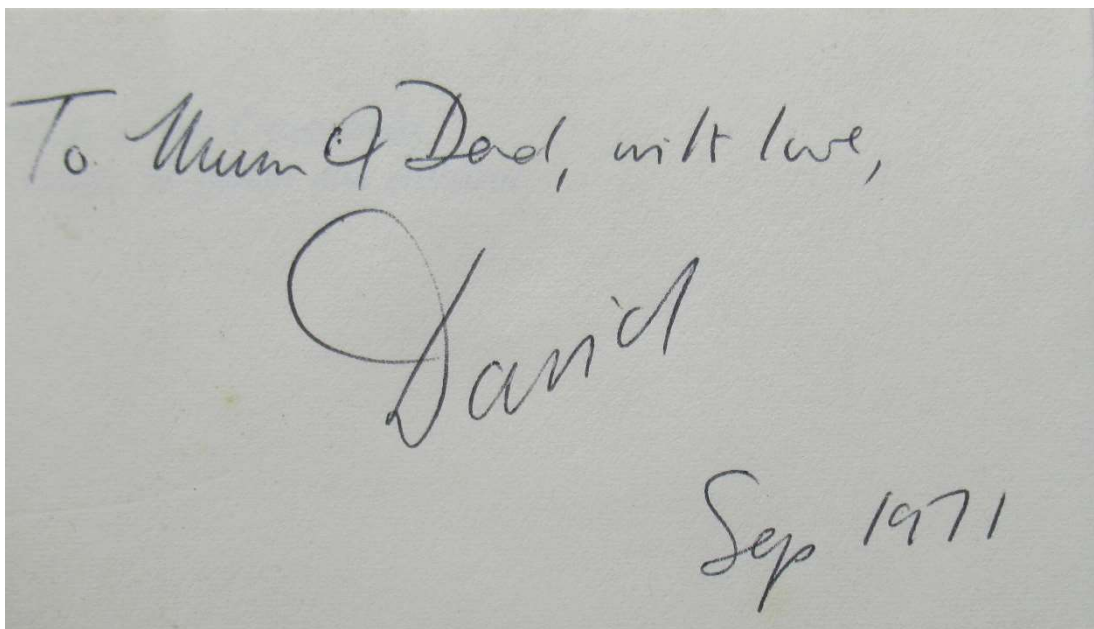 To Mum & Dad, with love,
David
Sep 1971